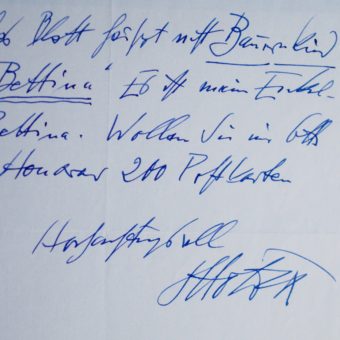 Blatt heißt nicht Bauernkind
Bettina" Es ist mein Enkel-
Bettina. Wollen Sie mir bitte
Honorar 200 Postkarten
Hochachtungsvoll